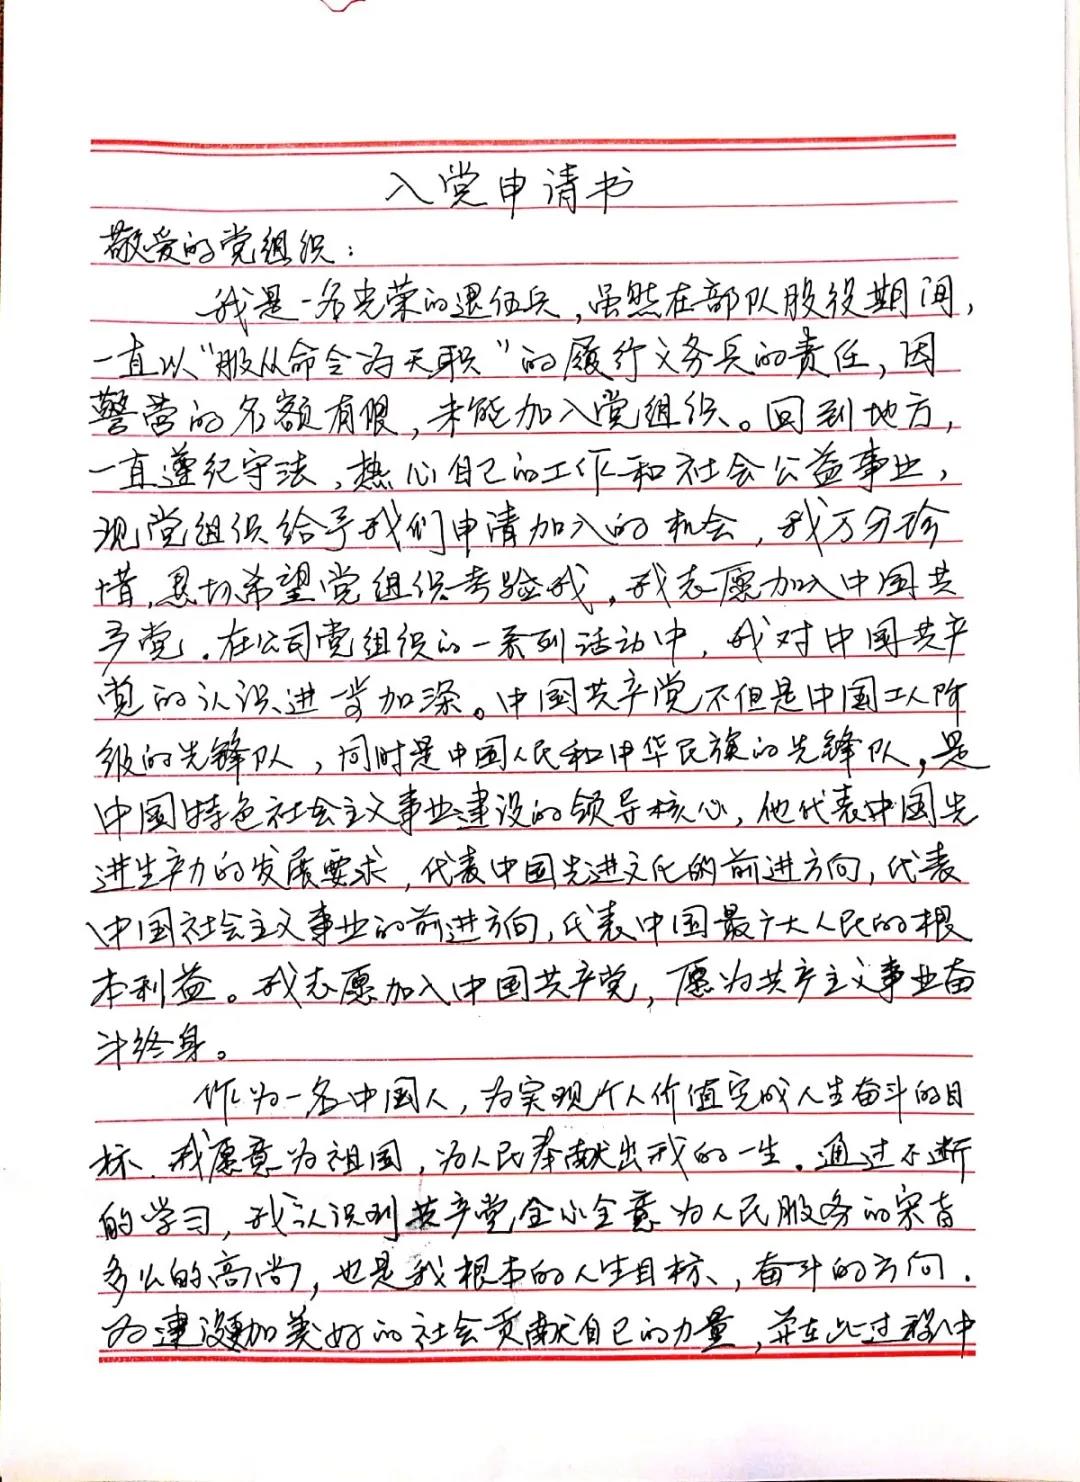 入党申请书
敬爱的党组织：
我是一名光荣的退伍兵，虽然在部队服役期间，
一直以“服从命令为天职”的履行义务兵的责任，因
警营的名额有限，未能加入党组织。回到地方，
一直遵纪守法，热心自己的工作和社会公益事业，
现党组织给予我们申请加入的机会，我万分珍
惜，恳切希望党组织考验我，我志愿加入中国共
产党。在公司党组织的一系列活动中，我对中国共产
党的认识进一步加深。中国共产党不但是中国工人阶
级的先锋队，同时是中国人民和中华民族的先锋队，是
中国特色社会主义事业建设的领导核心，他代表中国先
进生产力的发展要求，代表中国先进文化的前进方向，代表
中国社会主义事业的前进方向，代表中国最广大人民的根
本利益。我志愿加入中国共产党，愿为共产主义事业奋
斗终身。
作为一名中国人，为实现个人价值完成人生奋斗的目
标，我愿意为祖国，为人民奉献出我的一生。通过不断
的学习，我认识到共产党全心全意为人民服务的宗旨
多么的高尚，也是我根本的人生目标、奋斗的方向。
为建设更加美好的社会贡献自己的力量，并在此过程中